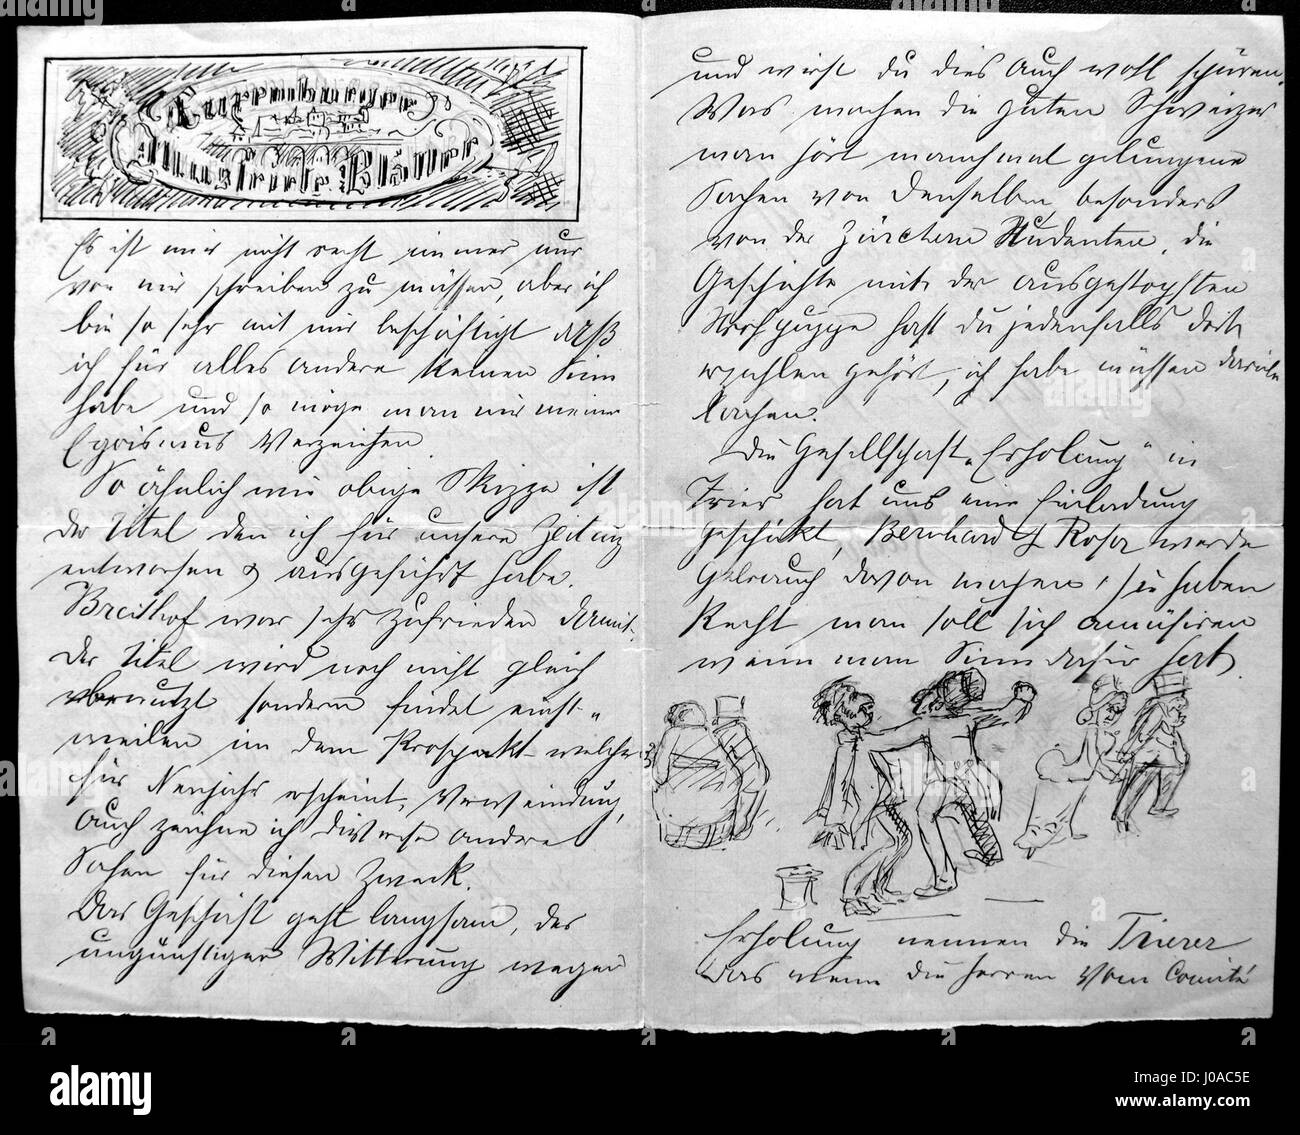 Luxemburger
Illustrierte Blätter
Es ist mir nicht recht immer nur
von mir schreiben zu müssen, aber ich
bin so sehr mit mir beschäftigt daß
ich für alles andere keinen Sinn
habe und so möge man mir meinen
Egoismus verzeihen.
So ähnlich wie obige Skizze ist
der Titel den ich für unsere Zeitung
entworfen & ausgeführt habe.
Breithof war sehr zufrieden damit.
Der Titel wird noch nicht gleich
benutzt sondern findet einst-
weilen in dem Prospekt welcher
für Neujahr erscheint, Verwendung,
Auch zeichne ich diverse andere
Sachen für diesen Zweck.
Das Geschäft geht langsam, der
ungünstigen Witterung wegen
und wirst du dies auch wohl spüren.
Was machen die guten Schweizer
man hört manchmal gelungene
Sachen von denselben, besonders
von den Zürchern Studenten, die
Geschichte mit der ausgestopften
Strohpuppe hast du jedenfalls dort
erzählen gehört, ich habe müssen darüber
lachen.
Die Gesellschaft „Erholung“ in
Trier hat uns eine Einladung
geschickt, Bernhard & Rosa werden
Gebrauch davon machen, sie haben
Recht man soll sich amüsiren
wenn man Sinn dafür hat.
Erholung nennen die Trierer
das wenn die Herren vom Comité
alamy
Image ID: J0AC5E
www.alamy.com